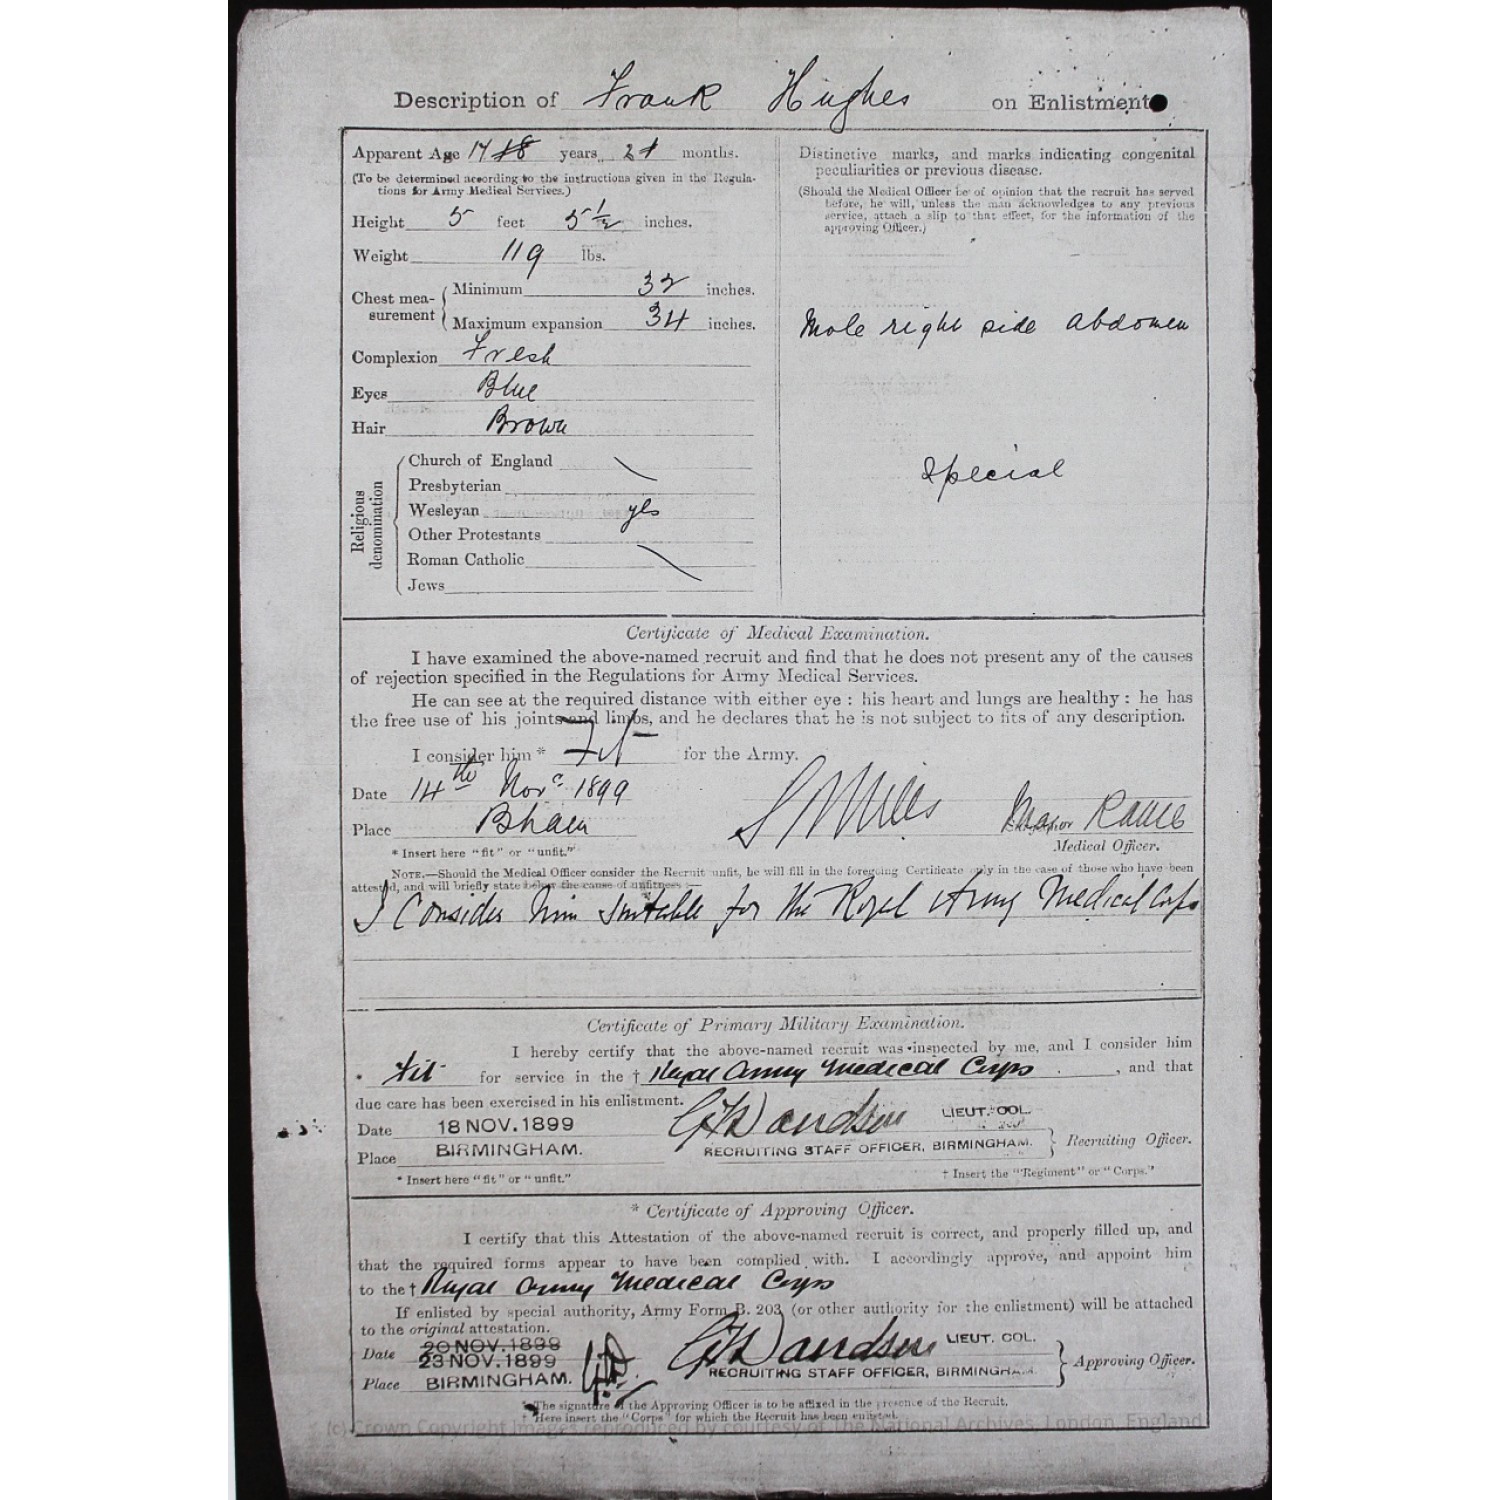 Description of Frank Hughes on Enlistment
Apparent Age 17 18 years 2 1 months.
(To be determined according to the instructions given in the Regula-
tions for Army Medical Services.)
Height 5 feet 5 1/2 inches.
Weight 119 lbs.
Chest mea-
surement
Minimum 32 inches.
Maximum expansion 34 inches.
Complexion Fresh
Eyes Blue
Hair Brown
Religious
denomination
Church of England
Presbyterian
Wesleyan yes
Other Protestants
Roman Catholic
Jews
Distinctive marks, and marks indicating congenital
peculiarities or previous disease.
(Should the Medical Officer be of opinion that the recruit has served
before, he will, unless the man acknowledges to any previous
service, attach a slip to that effect, for the information of the
approving Officer.)
Mole right side abdomen
Special
Certificate of Medical Examination.
I have examined the above-named recruit and find that he does not present any of the causes
of rejection specified in the Regulations for Army Medical Services.
He can see at the required distance with either eye : his heart and lungs are healthy : he has
the free use of his joints and limbs, and he declares that he is not subject to fits of any description.
I consider him * Fit for the Army.
Date 14th Novr 1899
Place Bham
Major RAMC
Medical Officer.
* Insert here "fit" or "unfit."
NOTE.—Should the Medical Officer consider the Recruit unfit, he will fill in the foregoing Certificate only in the case of those who have been
attested, and will briefly state below the cause of unfitness :—
I Consider him suitable for the Royal Army Medical Corps
Certificate of Primary Military Examination.
I hereby certify that the above-named recruit was inspected by me, and I consider him
* Fit for service in the † Royal Army Medical Corps, and that
due care has been exercised in his enlistment.
Date 18 NOV. 1899
LIEUT. COL.
Place BIRMINGHAM.
RECRUITING STAFF OFFICER, BIRMINGHAM. Recruiting Officer.
* Insert here "fit" or "unfit."
† Insert the "Regiment" or "Corps."
* Certificate of Approving Officer.
I certify that this Attestation of the above-named recruit is correct, and properly filled up, and
that the required forms appear to have been complied with. I accordingly approve, and appoint him
to the † Royal Army Medical Corps
If enlisted by special authority, Army Form B. 203 (or other authority for the enlistment) will be attached
to the original attestation.
20 NOV. 1899
Date 23 NOV. 1899
LIEUT. COL.
Place BIRMINGHAM.
RECRUITING STAFF OFFICER, BIRMINGHAM. Approving Officer.
* The signature of the Approving Officer is to be affixed in the presence of the Recruit.
† Here insert the "Corps" for which the Recruit has been enlisted.
(c) Crown Copyright Images reproduced by courtesy of The National Archives, London, England